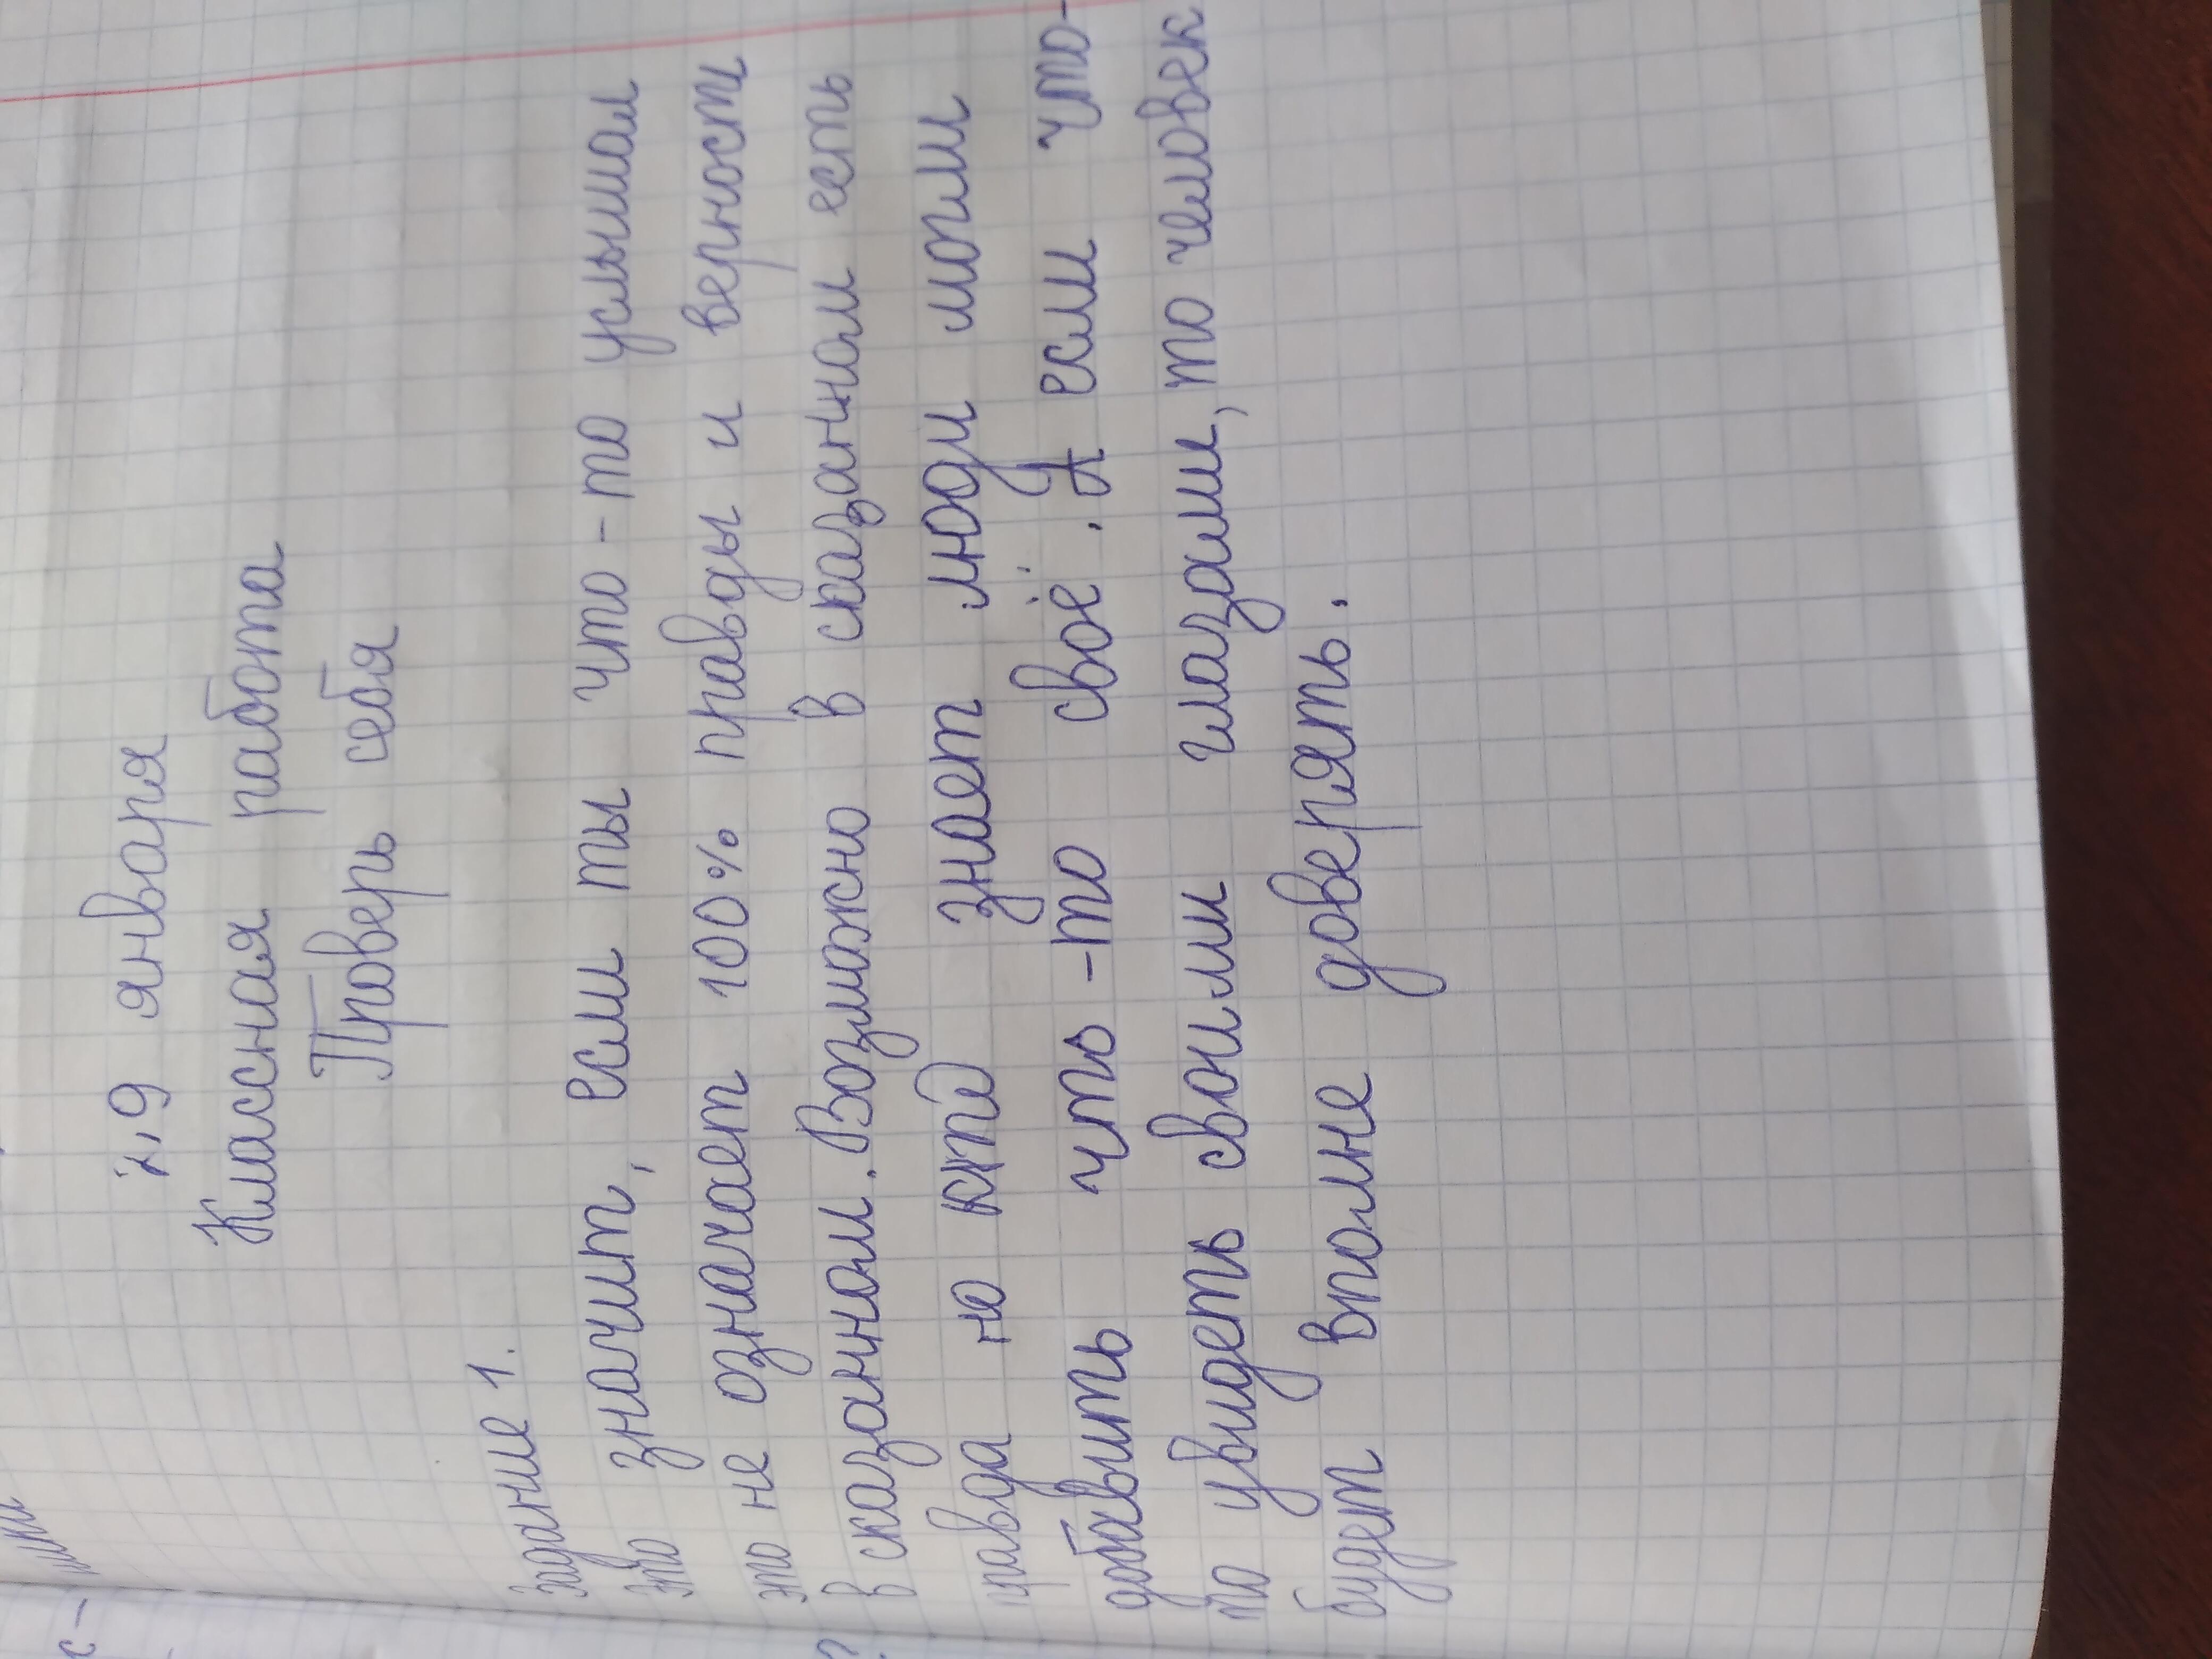 29 января
Классная работа
Проверь себя
Задание 1.
Это значит, если ты что-то услышал
это не означает 100% правды и верность
в сказанном. Возможно в сказанном есть
правда но кто знает люди могли
добавить что-то своё. А если что-
то увидеть своими глазами, то человек
будет вполне доверять.